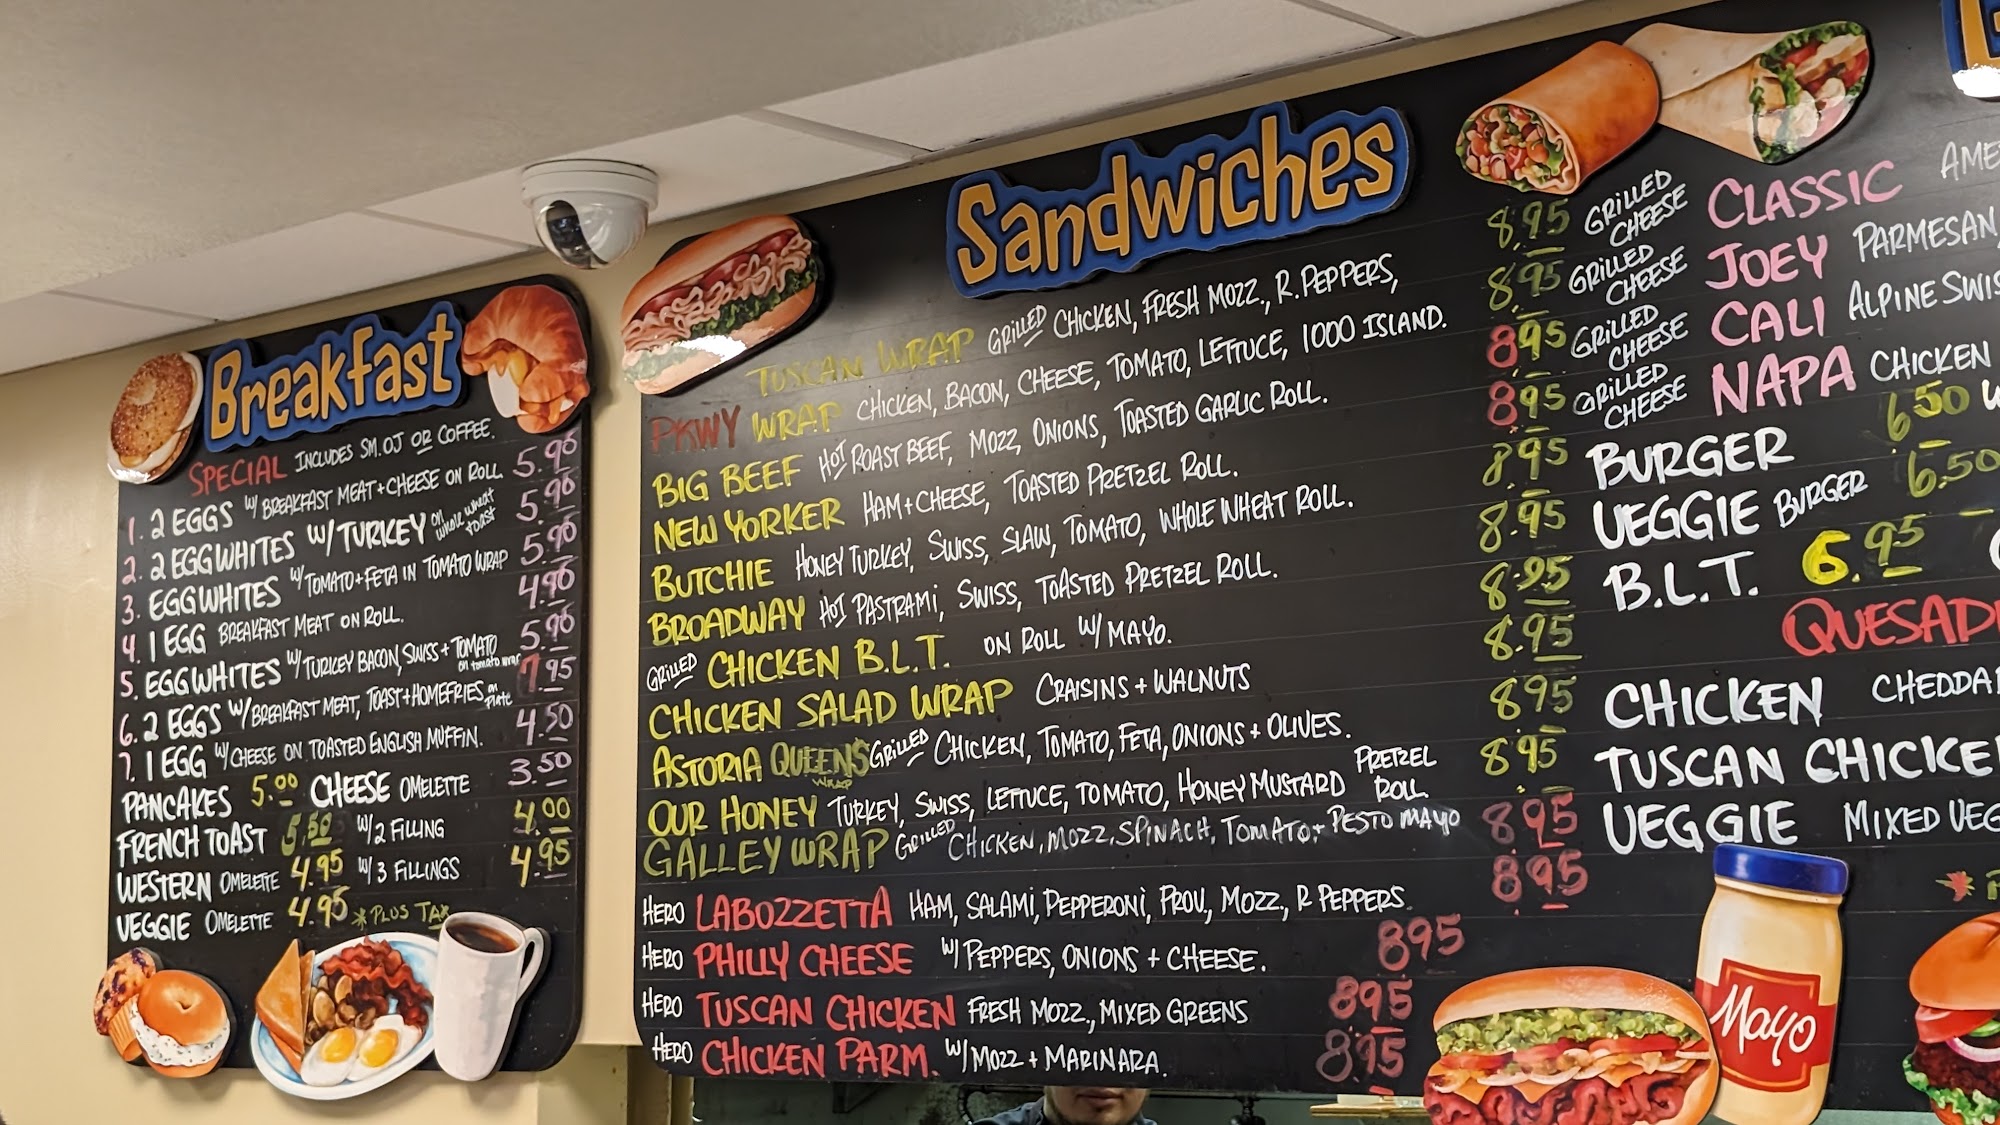 Breakfast
SPECIAL INCLUDES SM. OJ OR COFFEE.
1. 2 EGGS W/ BREAKFAST MEAT + CHEESE ON ROLL 5.90
2. 2 EGG WHITES W/ TURKEY ON whole wheat toast 5.90
3. EGG WHITES W/ TOMATO + FETA IN TOMATO WRAP 5.90
4. 1 EGG BREAKFAST MEAT ON ROLL. 4.90
5. EGG WHITES W/ TURKEY BACON, SWISS + TOMATO on tomato wrap 5.90
6. 2 EGGS W/ BREAKFAST MEAT, TOAST + HOMEFRIES on plate 7.95
7. 1 EGG W/ CHEESE ON TOASTED ENGLISH MUFFIN. 4.50
PANCAKES 5.00 CHEESE OMELETTE 3.50
FRENCH TOAST 5.50 W/2 FILLING 4.00
WESTERN OMELETTE 4.95 W/3 FILLINGS 4.95
VEGGIE OMELETTE 4.95 *PLUS TAX
Sandwiches
TUSCAN WRAP GRILLED CHICKEN, FRESH MOZZ., R. PEPPERS, 8.95
PKWY WRAP CHICKEN, BACON, CHEESE, TOMATO, LETTUCE, 1000 ISLAND. 8.95
BIG BEEF HOT ROAST BEEF, MOZZ, ONIONS, TOASTED GARLIC ROLL. 895
NEW YORKER HAM + CHEESE, TOASTED PRETZEL ROLL. 895
BUTCHIE HONEY TURKEY, SWISS, SLAW, TOMATO, WHOLE WHEAT ROLL. 8.95
BROADWAY HOT PASTRAMI, SWISS, TOASTED PRETZEL ROLL. 8.95
GRILLED CHICKEN B.L.T. ON ROLL W/ MAYO. 8.95
CHICKEN SALAD WRAP CRAISINS + WALNUTS 8.95
ASTORIA QUEENS WRAP GRILLED CHICKEN, TOMATO, FETA, ONIONS + OLIVES. 895
OUR HONEY TURKEY, SWISS, LETTUCE, TOMATO, HONEY MUSTARD PRETZEL ROLL 895
GALLEY WRAP GRILLED CHICKEN, MOZZ, SPINACH, TOMATO + PESTO MAYO 895
HERO LABOZZETTA HAM, SALAMI, PEPPERONI, PROV, MOZZ., R PEPPERS 895
HERO PHILLY CHEESE W/ PEPPERS, ONIONS + CHEESE. 895
HERO TUSCAN CHICKEN FRESH MOZZ., MIXED GREENS 895
HERO CHICKEN PARM. W/ MOZZ + MARINARA. 8.95
GRILLED CHEESE CLASSIC AME
GRILLED CHEESE JOEY PARMESAN,
GRILLED CHEESE CALI ALPINE SWIS
GRILLED CHEESE NAPA CHICKEN
BURGER 6.50
VEGGIE BURGER 6.50
B.L.T. 6.95
QUESAD
CHICKEN CHEDDA
TUSCAN CHICKE
VEGGIE MIXED VEG
Mayo